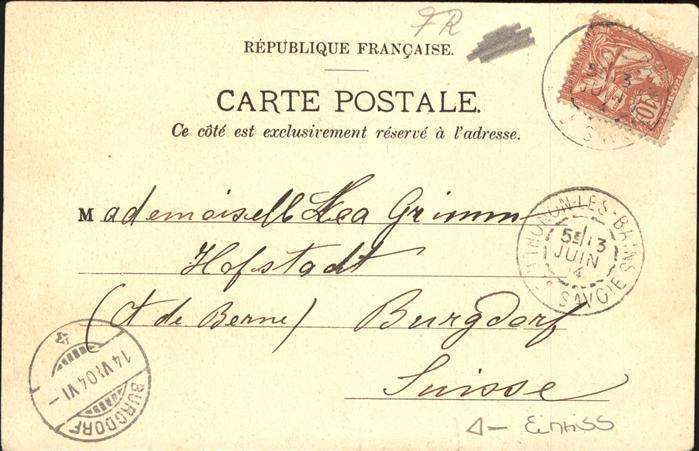 FR
RÉPUBLIQUE FRANÇAISE.
CARTE POSTALE.
Ce côté est exclusivement réservé à l'adresse.
Mademoiselle Léa Grimm
Hofstadt
(Ct de Berne) Burgdorf
Suisse
THONON-LES-BAINS
5E 13
JUIN
04
SAVOIE
BURGDORF
14 VI 04 VI
Einriss
10
13
JUIN